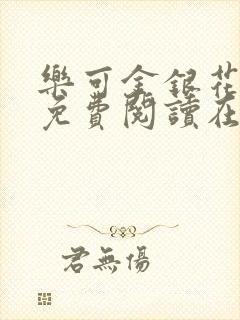 樂可金銀花
免費閱讀在
君無傷